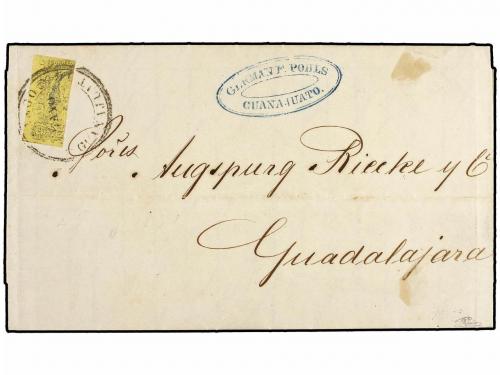 GERMAN F. POHLS
GUANAJUATO.
Sores Augspurg Riecke y Ca
Guadalajara